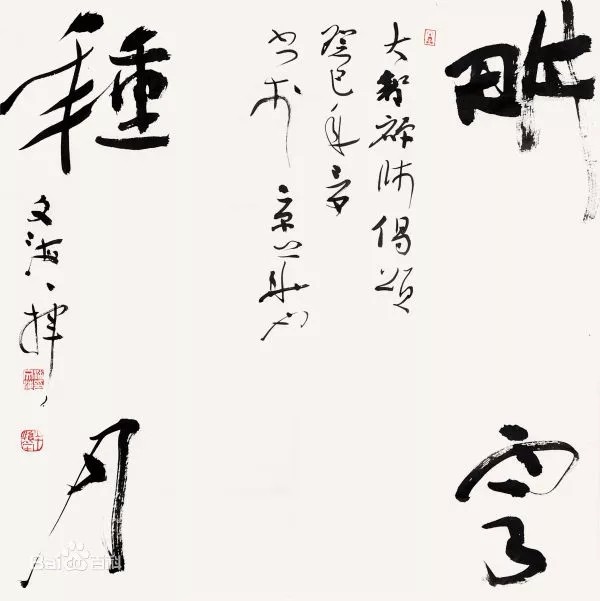 畊雲
大智禪师偈頌
癸巳年夏
书於 京
種月
文海 揮
Bai百科